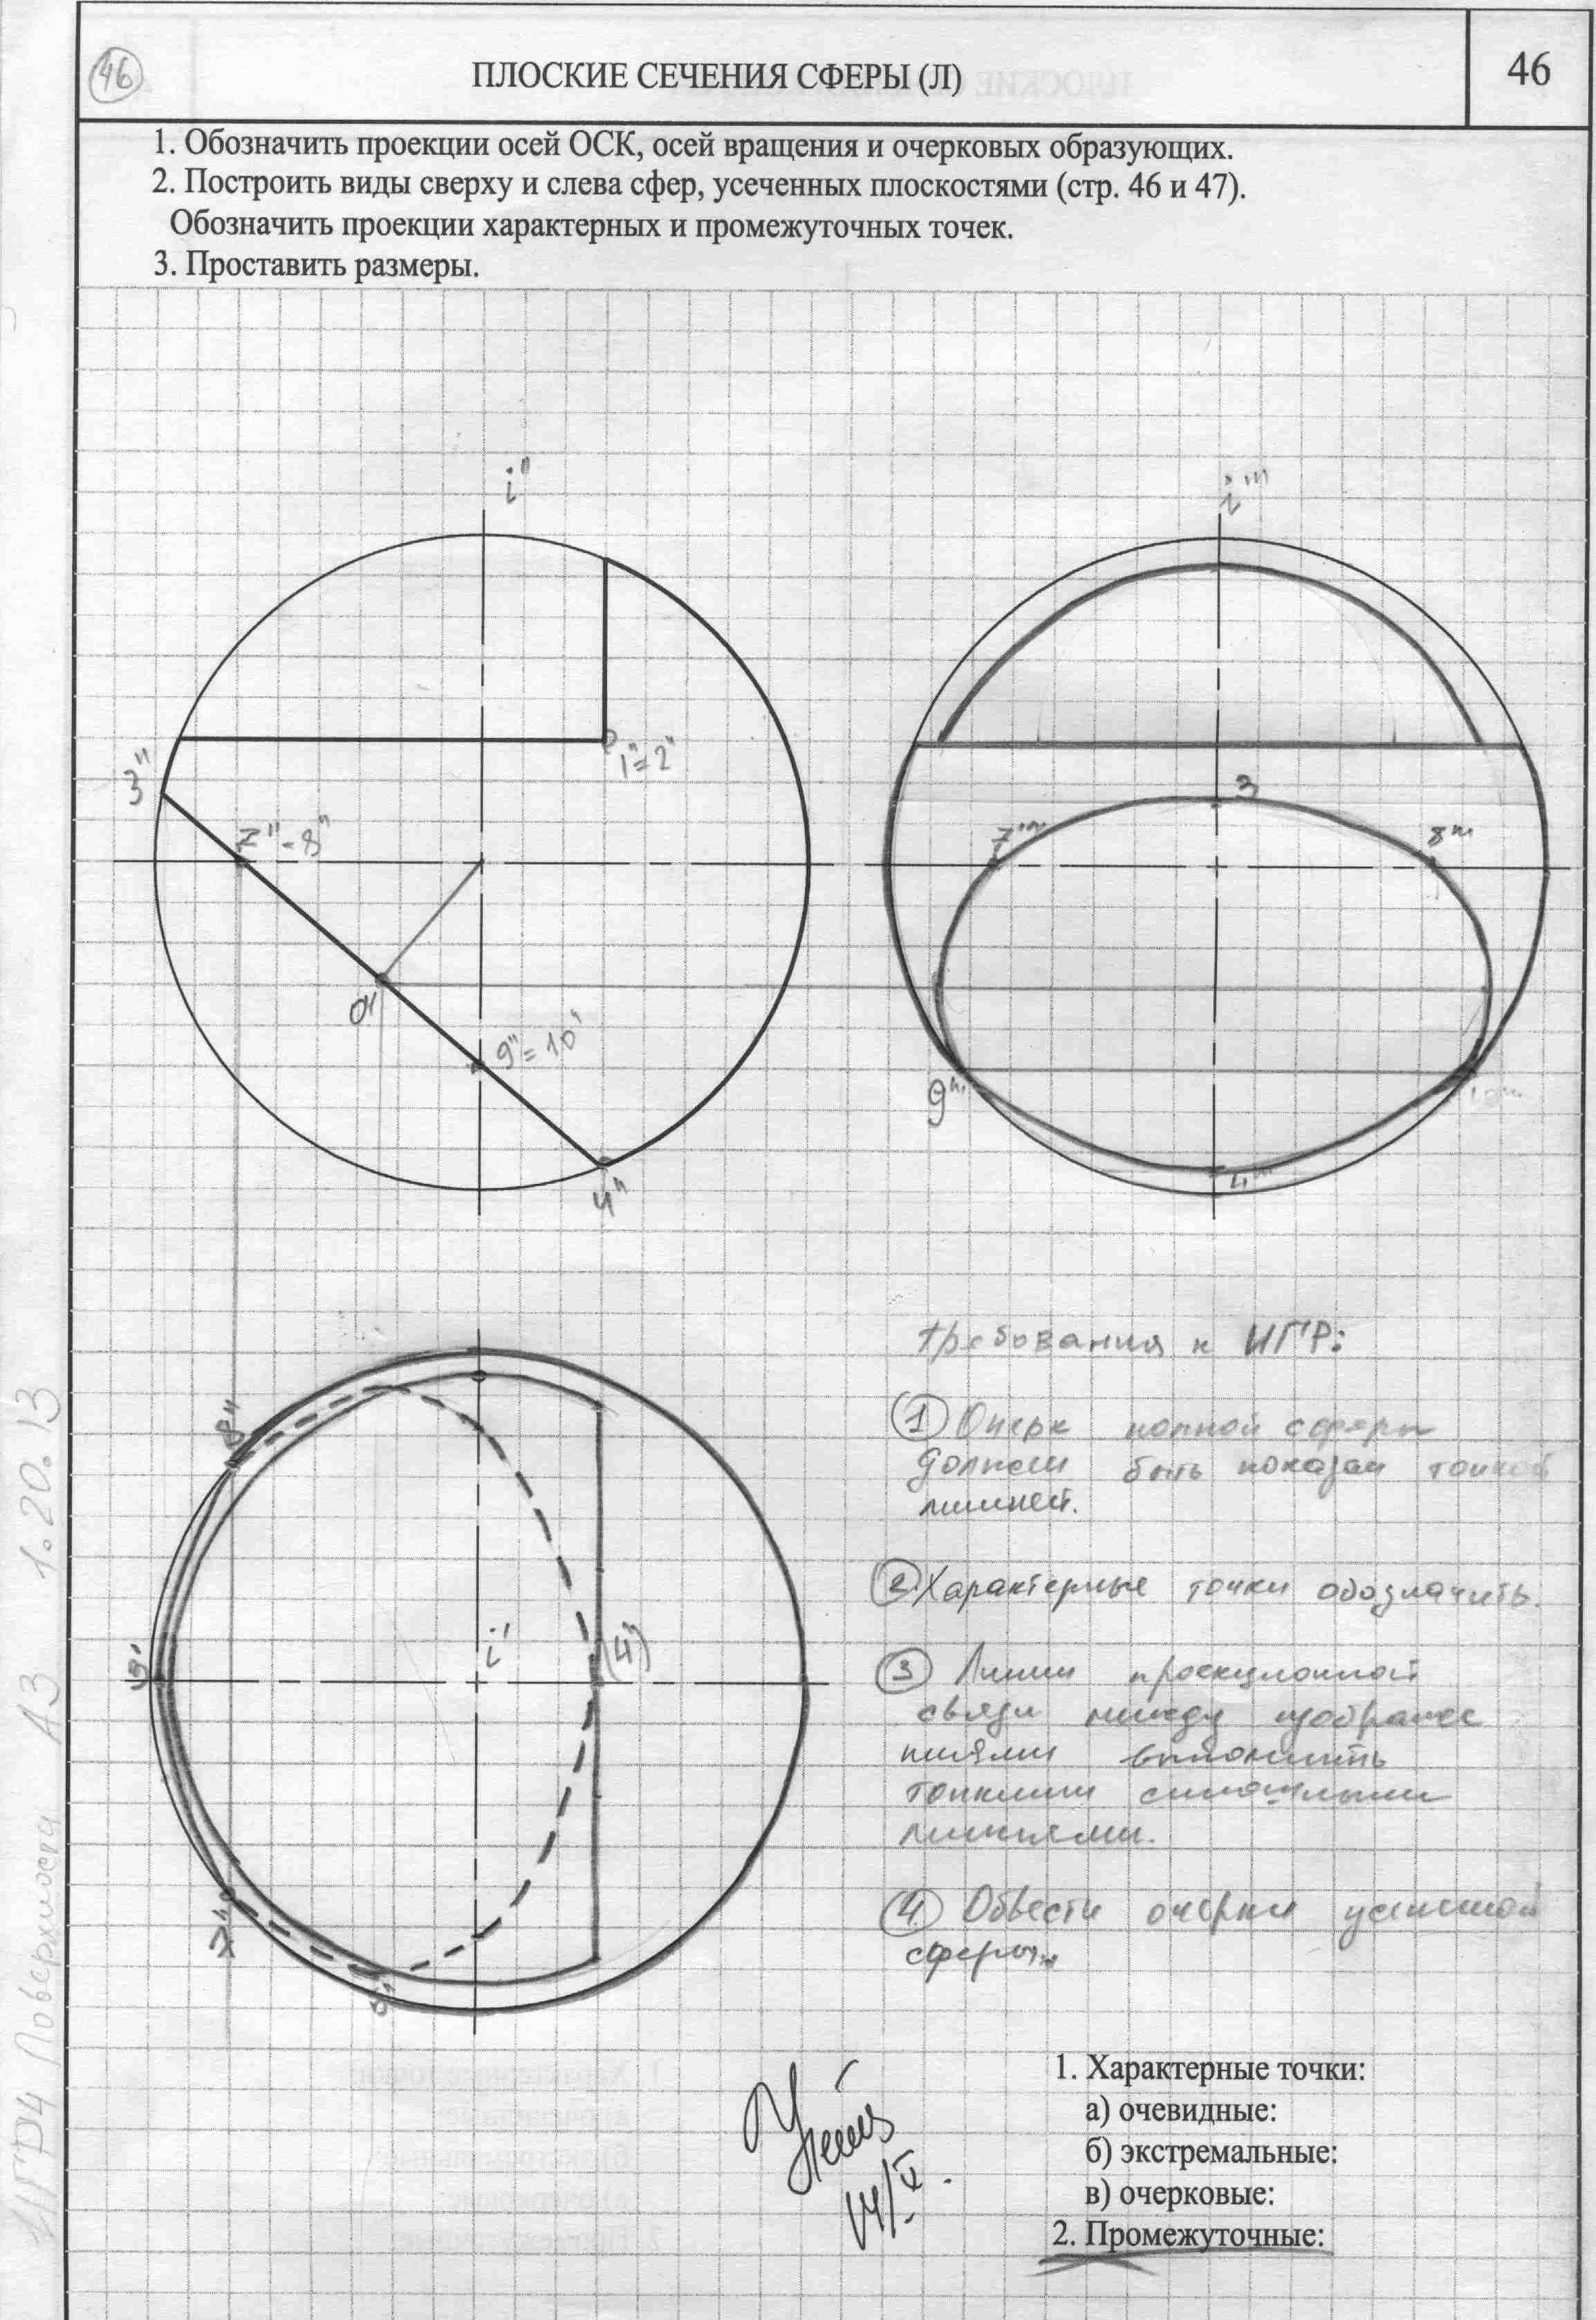 46
ПЛОСКИЕ СЕЧЕНИЯ СФЕРЫ (Л)
46
1. Обозначить проекции осей ОСК, осей вращения и очерковых образующих.
2. Построить виды сверху и слева сфер, усеченных плоскостями (стр. 46 и 47).
Обозначить проекции характерных и промежуточных точек.
3. Проставить размеры.
i"
i'''
3"
1"=2"
7"=8"
9"=10"
4"
3
7'''
8'''
9'''
10'''
4'''
8"
3'
i'
(4')
7'
Требования к ИГР:
1 Очерк полной сферы
должен быть показан тонкой
линией.
2. Характерные точки обозначить.
3 Линии проекционной
связи между изображе
ниями выполнить
тонкими сплошными
линиями.
4. Обвести очерки усеченной
сферы.
1. Характерные точки:
а) очевидные:
б) экстремальные:
в) очерковые:
2. Промежуточные:
ИГР4 Поверхности А3 1.20.13